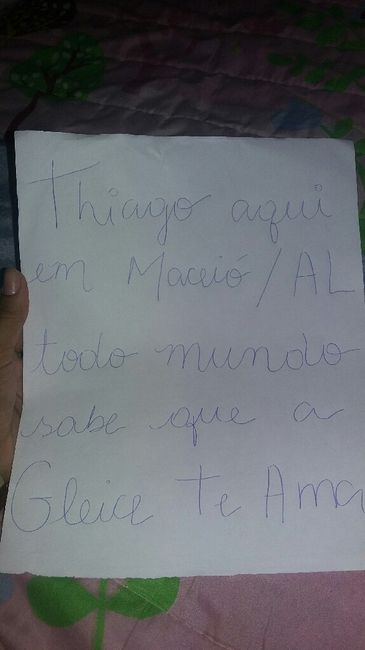 Thiago aqui
em Maceió/AL
todo mundo
sabe que a
Gleice te Ama